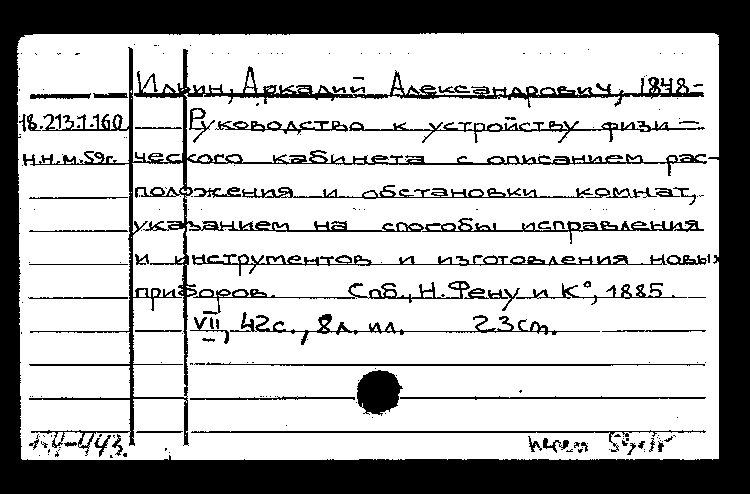 Ильин, Аркадий Александрович, 1848-
18.213.1.160 Руководство к устройству физи=
н.н.м.59г. ческого кабинета с описанием рас-
положения и обстановки комнат,
указанием на способы исправления
и инструментов и изготовления новых
приборов. Спб., Н. Фену и К°, 1885.
VII, 42с., 8л. ил. 23cm.